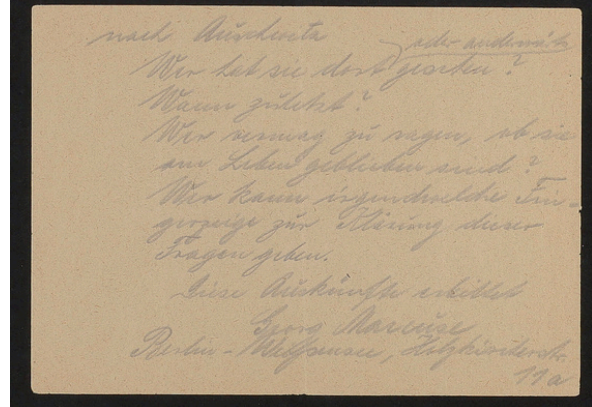 nach Auschwitz
oder anderwärts
Wer hat sie dort gesehen?
Wann zuletzt?
Wer vermag zu sagen, ob sie
am Leben geblieben sind?
Wer kann irgendwelche Fin-
gerzeige zur Klärung dieser
Fragen geben.
Diese Auskünfte erbittet
Georg Marcuse
Berlin-Weißensee,
11a